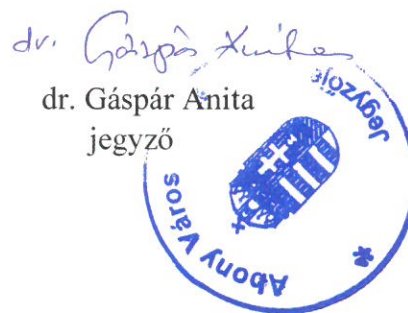 dr. Gáspár Anita
dr. Gáspár Anita
jegyző
Abony Város Jegyzője